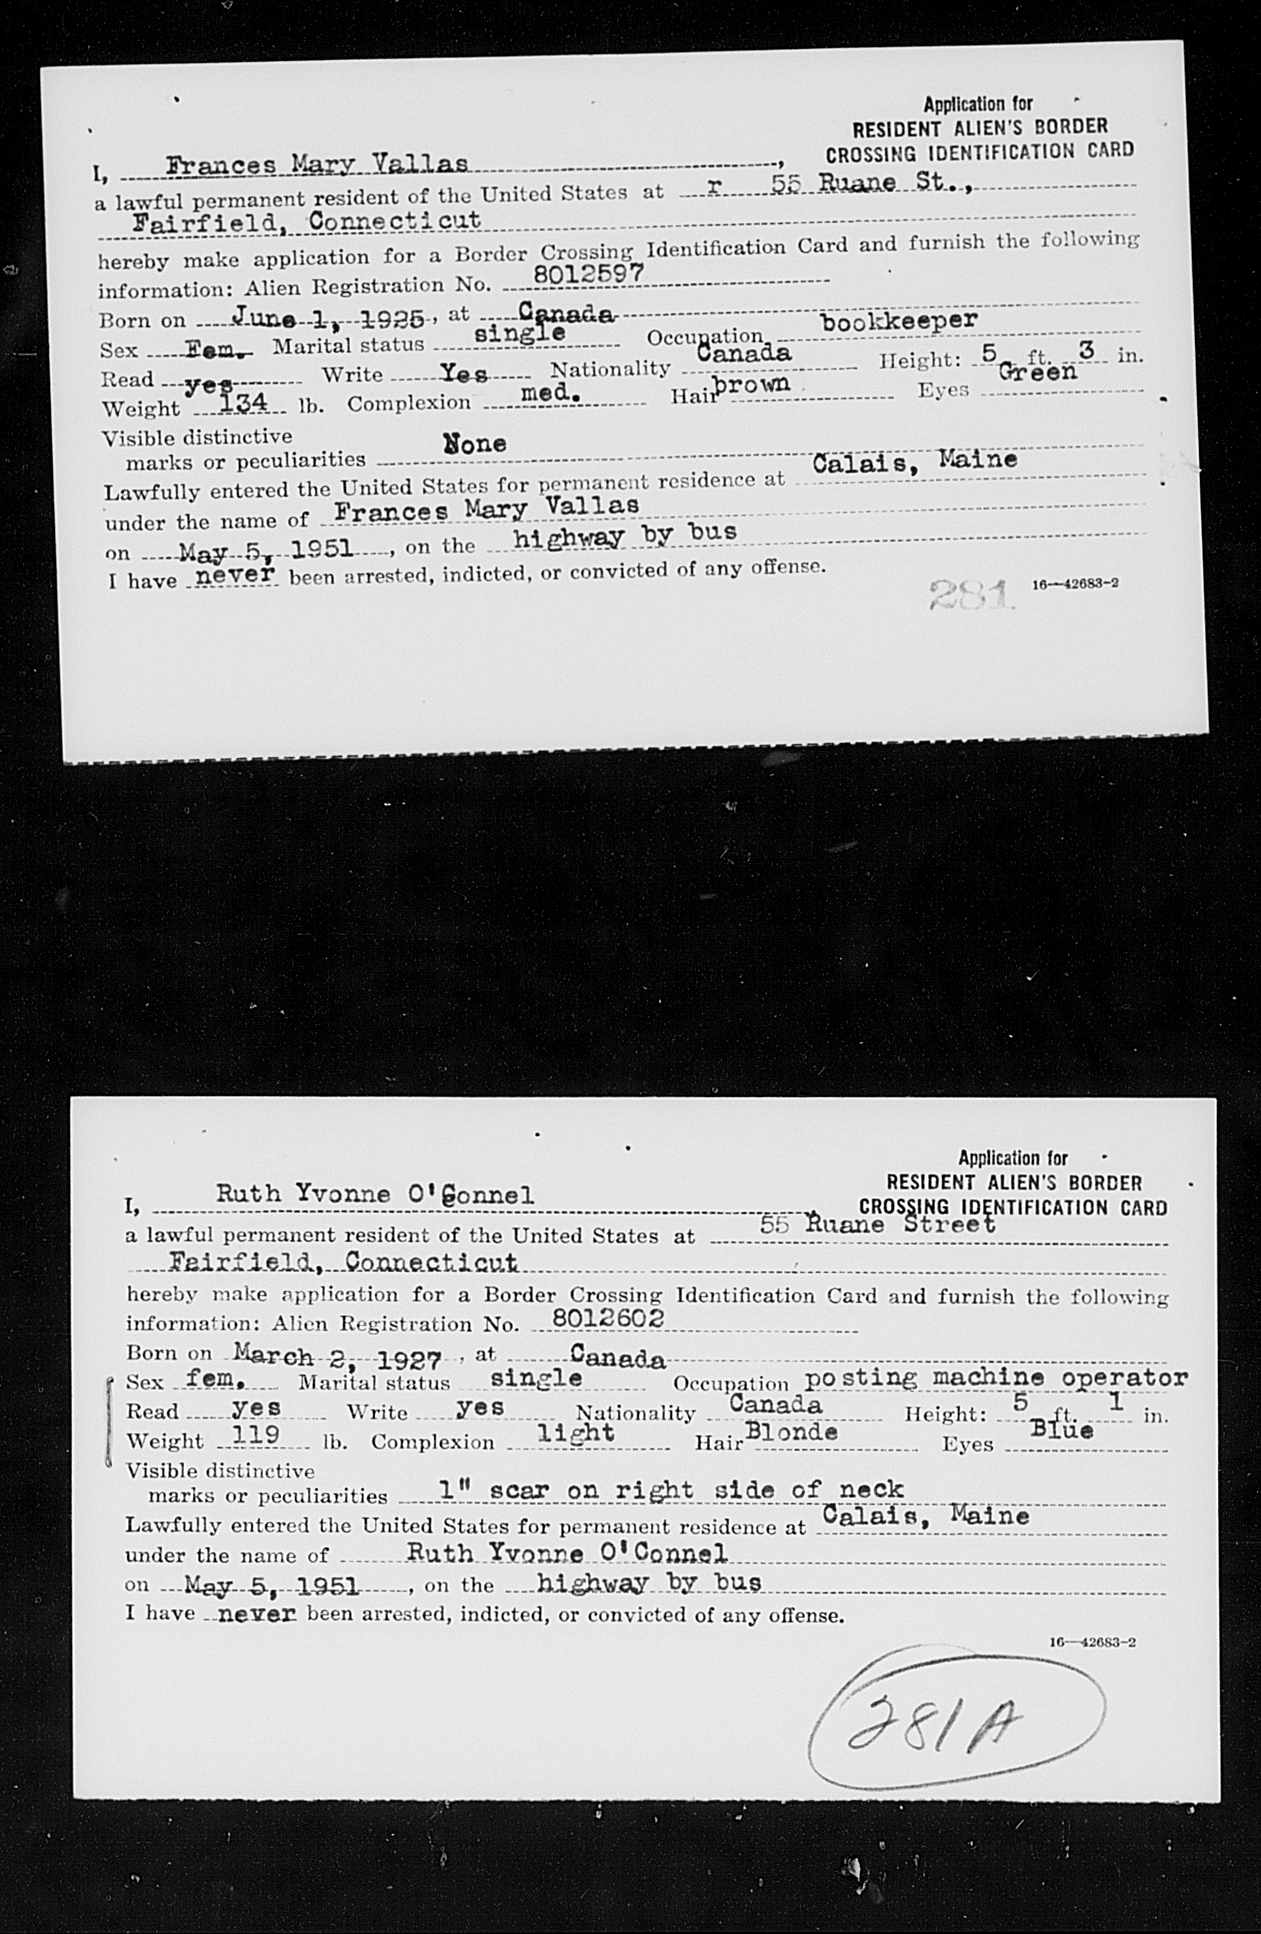 Application for
RESIDENT ALIEN'S BORDER
CROSSING IDENTIFICATION CARD
I, Frances Mary Vallas,
a lawful permanent resident of the United States at r 55 Ruane St.,
Fairfield, Connecticut
hereby make application for a Border Crossing Identification Card and furnish the following
information: Alien Registration No. 8012597
Born on June 1, 1925, at Canada
Sex Fem. Marital status single Occupation bookkeeper
Read yes Write Yes Nationality Canada Height: 5 ft. 3 in.
Weight 134 lb. Complexion med. Hair brown Eyes Green
Visible distinctive
marks or peculiarities None
Lawfully entered the United States for permanent residence at Calais, Maine
under the name of Frances Mary Vallas
on May 5, 1951, on the highway by bus
I have never been arrested, indicted, or convicted of any offense.
281 16—42683-2
Application for
RESIDENT ALIEN'S BORDER
CROSSING IDENTIFICATION CARD
I, Ruth Yvonne O'Connel,
a lawful permanent resident of the United States at 55 Ruane Street
Fairfield, Connecticut
hereby make application for a Border Crossing Identification Card and furnish the following
information: Alien Registration No. 8012602
Born on March 2, 1927, at Canada
Sex fem. Marital status single Occupation posting machine operator
Read yes Write yes Nationality Canada Height: 5 ft. 1 in.
Weight 119 lb. Complexion light Hair Blonde Eyes Blue
Visible distinctive
marks or peculiarities 1" scar on right side of neck
Lawfully entered the United States for permanent residence at Calais, Maine
under the name of Ruth Yvonne O'Connel
on May 5, 1951, on the highway by bus
I have never been arrested, indicted, or convicted of any offense.
16—42683-2
281A